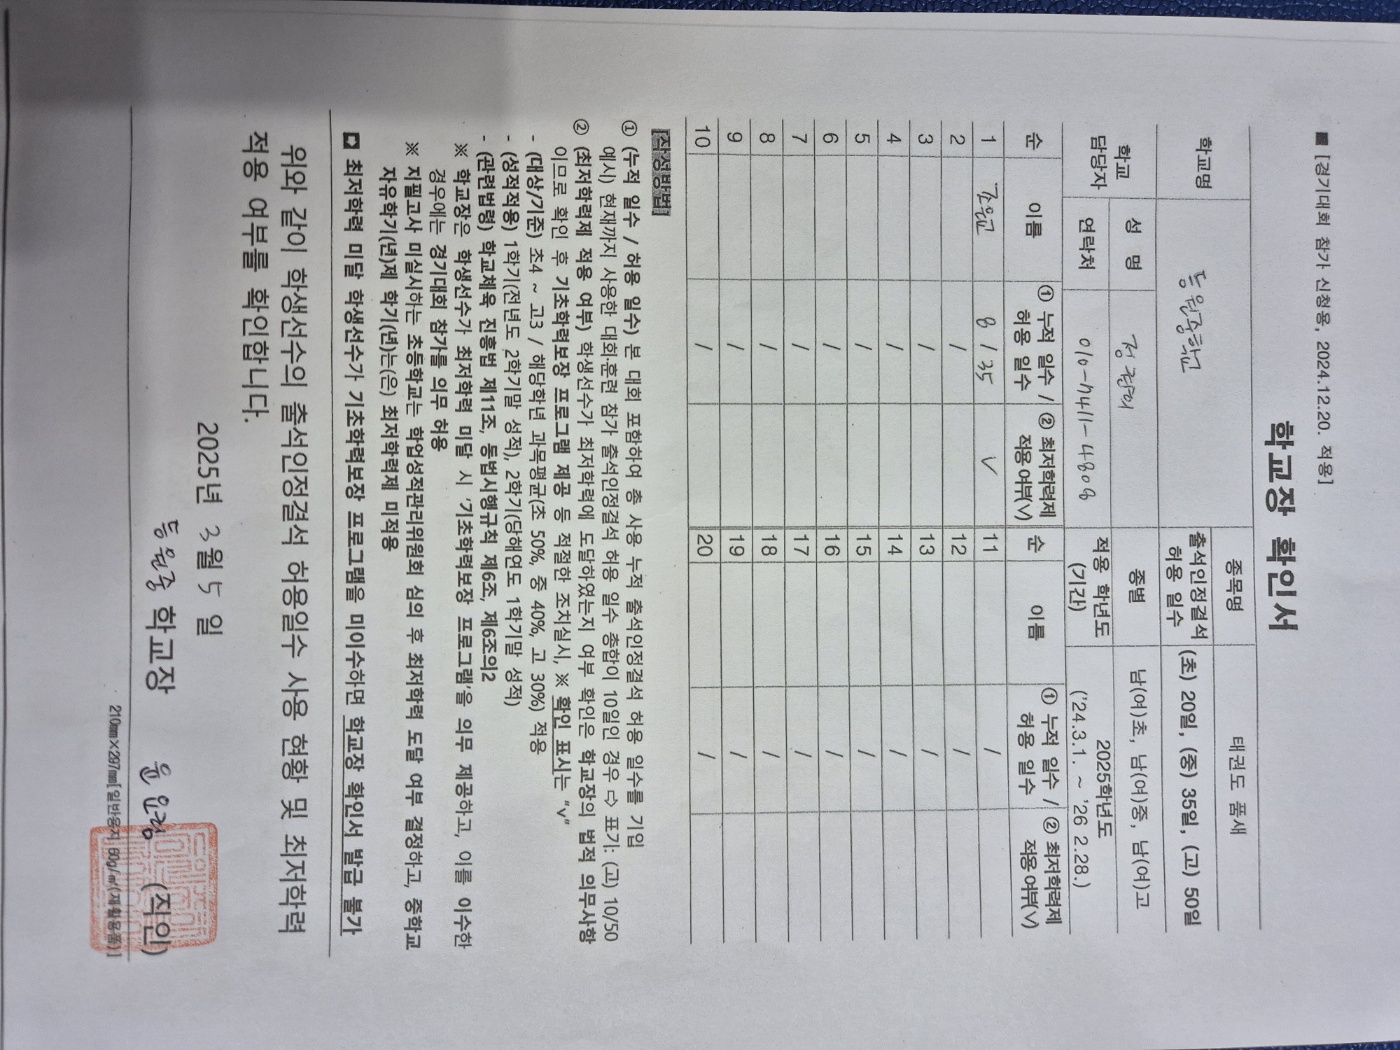 ■ [경기대회 참가 신청용, 2024.12.20. 적용]
학교장 확인서
학교명 동원중학교 종목명 태권도 품새
출석인정결석 허용 일수 (초) 20일, (중) 35일, (고) 50일
학교 담당자 성 명 종별 남(여)초, 남(여)중, 남(여)고
연락처 010-7411-4808 적용 학년도 (기간) 2025학년도 ('24.3.1. ~ '26 2.28.)
순 이름 ① 누적 일수 / 허용 일수 ② 최저학력제 적용 여부(√) 순 이름 ① 누적 일수 / 허용 일수 ② 최저학력제 적용 여부(√)
1 8 / 35 √ 11 /
2 / 12 /
3 / 13 /
4 / 14 /
5 / 15 /
6 / 16 /
7 / 17 /
8 / 18 /
9 / 19 /
10 / 20 /
[작성방법]
① (누적 일수 / 허용 일수) 본 대회 포함하여 총 사용 누적 출석인정결석 허용 일수를 기입
예시) 현재까지 사용한 대회·훈련 참가 출석인정결석 허용 일수 총합이 10일인 경우 ⇨ 표기: (고) 10/50
② (최저학력제 적용 여부) 학생선수가 최저학력에 도달하였는지 여부 확인은 학교장의 법적 의무사항
이므로 확인 후 기초학력보장 프로그램 제공 등 적절한 조치실시, ※ 확인 표시는 "√"
- (대상/기준) 초4 ~ 고3 / 해당학년 과목평균(초 50%, 중 40%, 고 30%) 적용
- (성적적용) 1학기(전년도 2학기말 성적), 2학기(당해연도 1학기말 성적)
- (관련법령) 학교체육 진흥법 제11조, 동법시행규칙 제6조, 제6조의2
※ 학교장은 학생선수가 최저학력 미달 시 '기초학력보장 프로그램'을 의무 제공하고, 이를 이수한
경우에는 경기대회 참가를 의무 허용
※ 지필고사 미실시하는 초등학교는 학업성적관리위원회 심의 후 최저학력 도달 여부 결정하고, 중학교
자유학기(년)제 학기(년)는(은) 최저학력제 미적용
◘ 최저학력 미달 학생선수가 기초학력보장 프로그램을 미이수하면 학교장 확인서 발급 불가
위와 같이 학생선수의 출석인정결석 허용일수 사용 현황 및 최저학력
적용 여부를 확인합니다.
2025년 3월 5일
동원중 학교장 윤 (직인)
210㎜×297㎜[일반용지 60g/㎡(재활용품)]